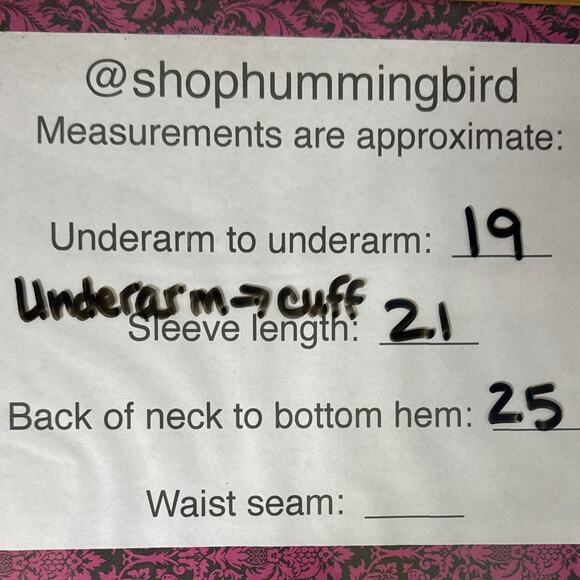 @shophummingbird
Measurements are approximate:
Underarm to underarm: 19
Underarm → cuff
Sleeve length: 21
Back of neck to bottom hem: 25
Waist seam: ____